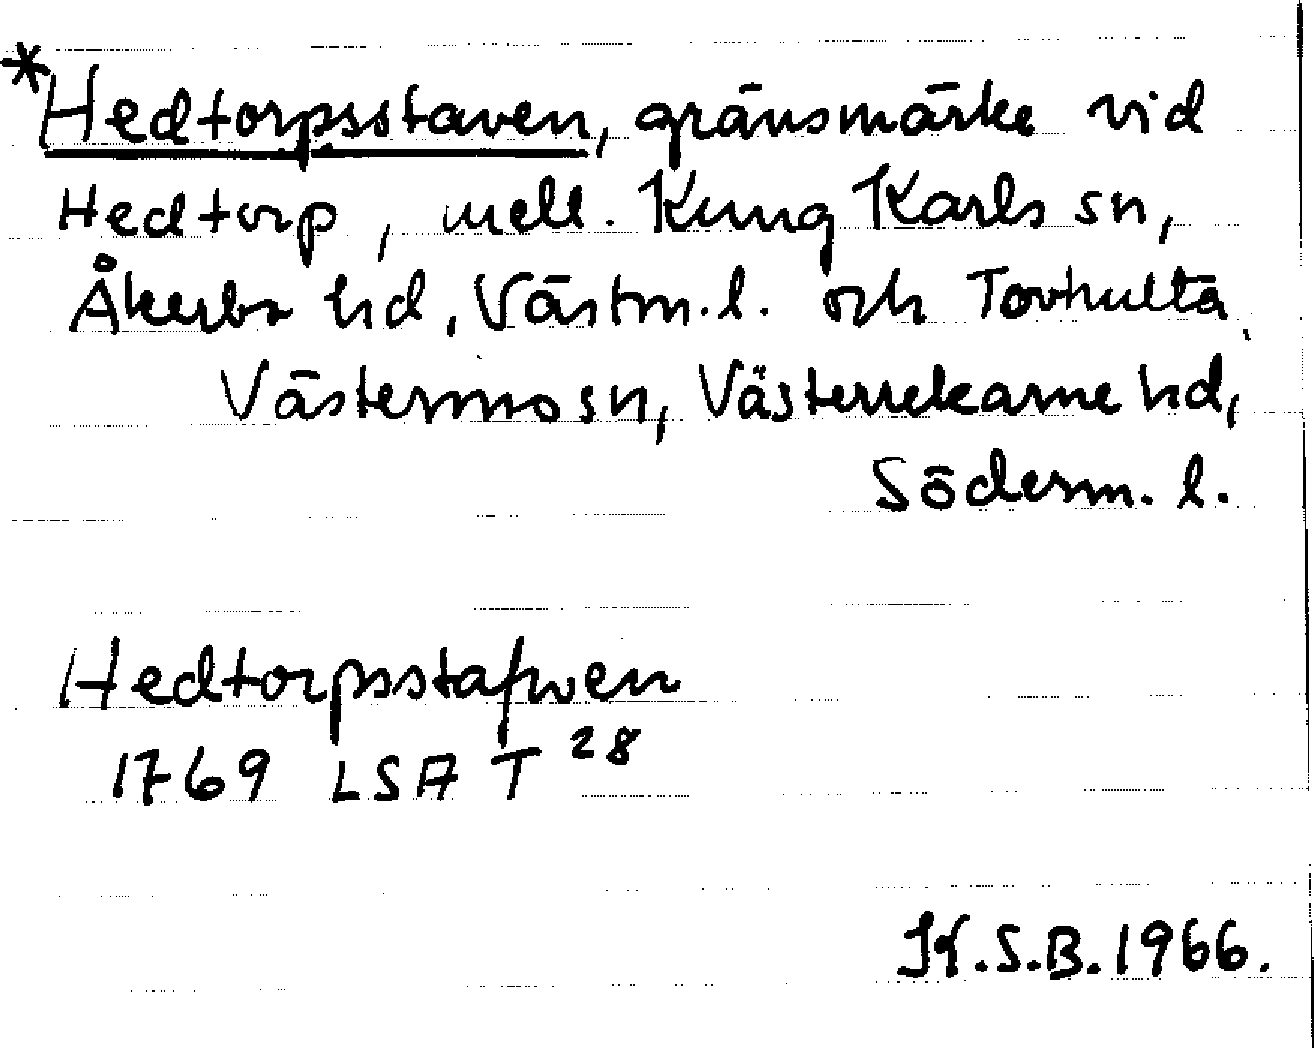 *Hedtorpsstaven, gränsmärke vid
Hedtorp, mell. Kung Karls sn,
Åkerbo hd, Västm. l. och Torhulta,
Västermo sn, Västerrekarne hd,
Söderm. l.
Hedtorpsstafwen
1769 LSA T 28
K.S.B. 1966.